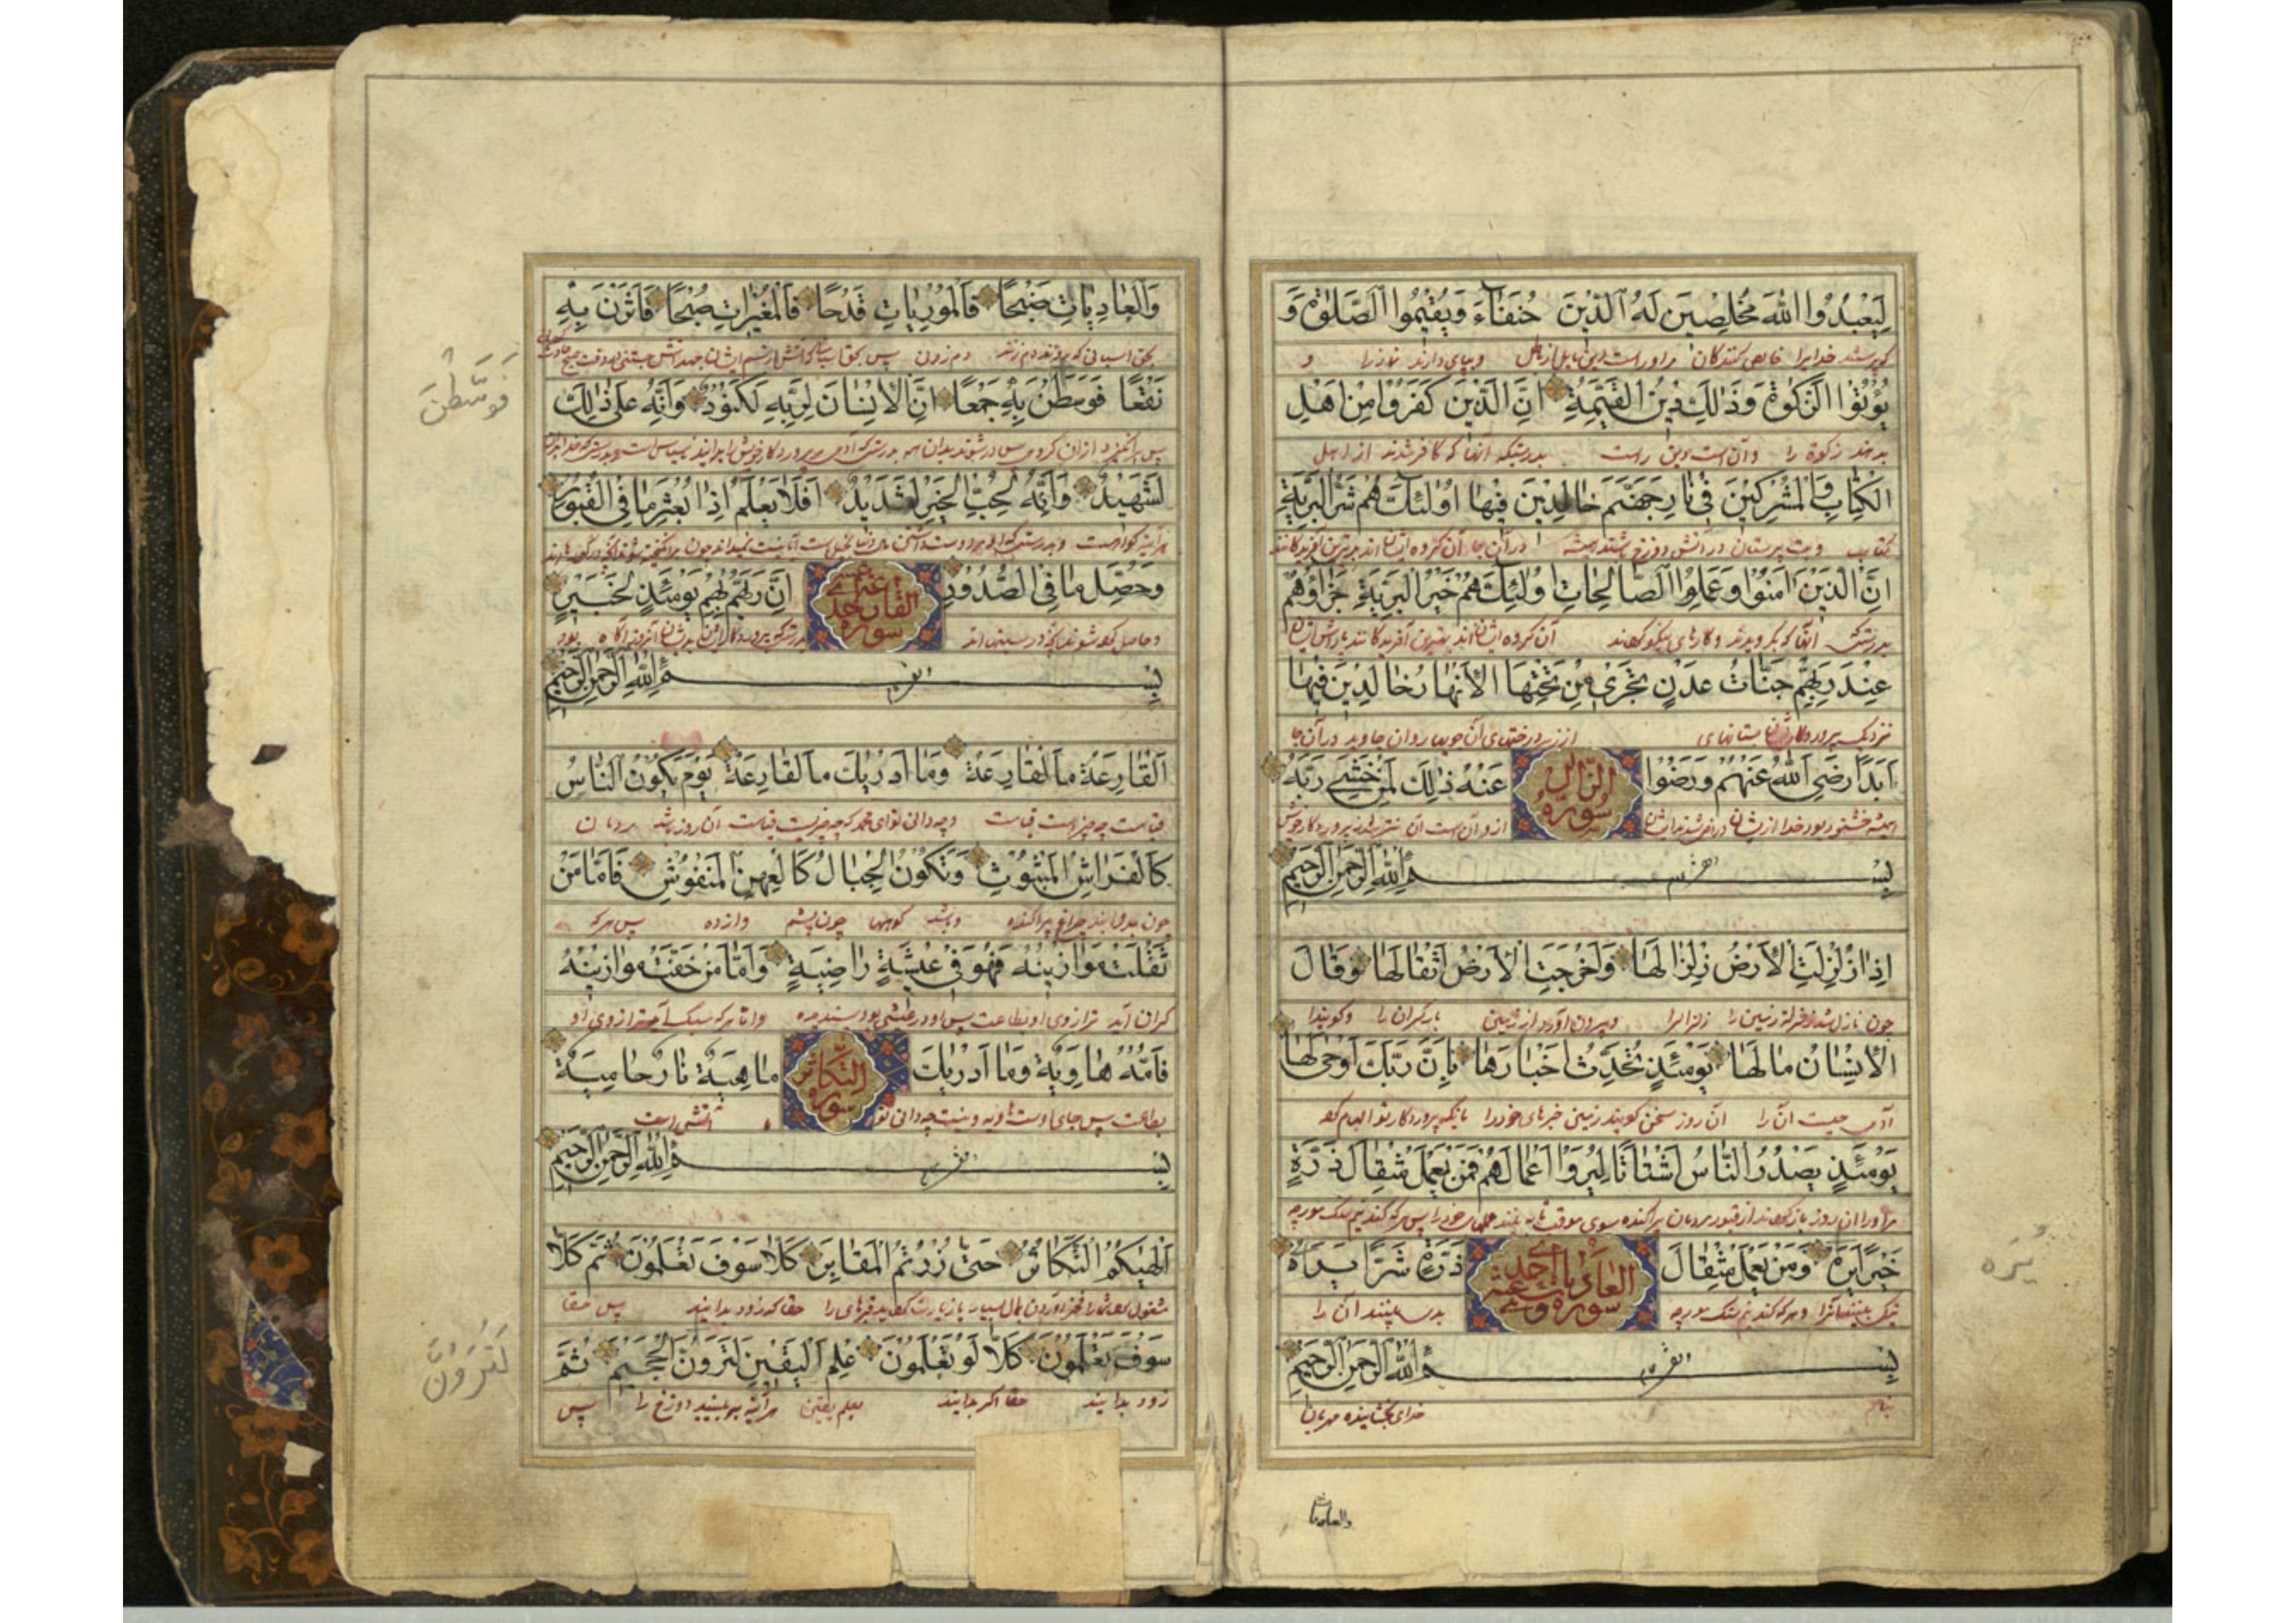 لِيَعْبُدُوا اللّٰهَ مُخْلِصِينَ لَهُ الدِّينَ حُنَفَاءَ وَيُقِيمُوا الصَّلٰوةَ وَ
که پرستند خدایرا خالص کنندکان مر او راست دین مایل از باطل و بپای دارند نماز را و
يُؤْتُوا الزَّكٰوةَ وَذٰلِكَ دِينُ الْقَيِّمَةِ اِنَّ الَّذِينَ كَفَرُوا مِنْ اَهْلِ
بدهند زکوة را و آن است دین راست بدرستیکه آنها که کافر شدند از اهل
الْكِتَابِ وَالْمُشْرِكِينَ فِي نَارِ جَهَنَّمَ خَالِدِينَ فِيهَا اُولٰئِكَ هُمْ شَرُّ الْبَرِيَّةِ
کتاب و بت پرستان در آتش دوزخ باشند همیشه در آن جا آن کروه ایشان اند بدترین آفریدکانند
اِنَّ الَّذِينَ اٰمَنُوا وَعَمِلُوا الصَّالِحَاتِ اُولٰئِكَ هُمْ خَيْرُ الْبَرِيَّةِ جَزَاؤُهُمْ
بدرستیکه آنها که بکرویدند و کارهای نیکو کردند آن کروه ایشان اند بهترین آفریدکانند پاداش ایشان
عِنْدَ رَبِّهِمْ جَنَّاتُ عَدْنٍ تَجْرِي مِنْ تَحْتِهَا الْاَنْهَارُ خَالِدِينَ فِيهَا
نزدیک پروردکارشان بستانهای از زیر درختهای آن جویها روان جاوید در آن جا
اَبَدًا رَضِيَ اللّٰهُ عَنْهُمْ وَرَضُوا سورة الزلزال عَنْهُ ذٰلِكَ لِمَنْ خَشِيَ رَبَّهُ
همیشه خشنود بود خدا از ایشان و راضی شدند ایشان از و آن است آن بترسد از پروردکار خویش
بِسْمِ اللّٰهِ الرَّحْمٰنِ الرَّحِيمِ
اِذَا زُلْزِلَتِ الْاَرْضُ زِلْزَالَهَا وَاَخْرَجَتِ الْاَرْضُ اَثْقَالَهَا وَقَالَ
چون زلزله زمین را زلزالها و بیرون آورد از زمین بار کران را و کویند
الْاِنْسَانُ مَا لَهَا يَوْمَئِذٍ تُحَدِّثُ اَخْبَارَهَا بِاَنَّ رَبَّكَ اَوْحٰى لَهَا
آدمی چیست آن را آن روز سخن کویند زمین خبرهای خود را بانکه پروردکار تو الهام کرد
يَوْمَئِذٍ يَصْدُرُ النَّاسُ اَشْتَاتًا لِيُرَوْا اَعْمَالَهُمْ فَمَنْ يَعْمَلْ مِثْقَالَ ذَرَّةٍ
مر او را آن روز باز کردند از قبور مردمان پراکنده سوی موقف تا به بینند عملهای خود را پس هر که کند هم سنک مورچه
خَيْرًا يَرَهُ وَمَنْ يَعْمَلْ مِثْقَالَ سورة العاديات احدى عشر ذَرَّةٍ شَرًّا يَرَهُ
نیکی ببینند آنرا و هر که کند هم سنک مورچه بدی ببینند آن را
بِسْمِ اللّٰهِ الرَّحْمٰنِ الرَّحِيمِ
بنام خدای بخشاینده مهربان
يَرَه
والعاديات
وَالْعَادِيَاتِ ضَبْحًا فَالْمُورِيَاتِ قَدْحًا فَالْمُغِيرَاتِ صُبْحًا فَاَثَرْنَ بِهِ
بحق اسبانی که دم زنند دم زدن پس بحق وقت صبح
نَقْعًا فَوَسَطْنَ بِهِ جَمْعًا اِنَّ الْاِنْسَانَ لِرَبِّهِ لَكَنُودٌ وَاِنَّهُ عَلٰى ذٰلِكَ
پس برانکیزند از ان کرد بدرستیکه آدمی مر پروردکار خویش را
لَشَهِيدٌ وَاِنَّهُ لِحُبِّ الْخَيْرِ لَشَدِيدٌ اَفَلَا يَعْلَمُ اِذَا بُعْثِرَ مَا فِي الْقُبُورِ
هر آینه کواه است و بدرستیکه او دوست داشتن مال بخیل است آیا نمیداند چون
وَحُصِّلَ مَا فِي الصُّدُورِ سورة القارعة احدى عشر اِنَّ رَبَّهُمْ بِهِمْ يَوْمَئِذٍ لَخَبِيرٌ
و حاصل کرده شود آنچه در سینهااند بدرستیکه پروردکار ایشان بدیشان آنروز آکاه بود
بِسْمِ اللّٰهِ الرَّحْمٰنِ الرَّحِيمِ
اَلْقَارِعَةُ مَا الْقَارِعَةُ وَمَا اَدْرٰيكَ مَا الْقَارِعَةُ يَوْمَ يَكُونُ النَّاسُ
قیامت چه چیز است قیامت و چه دانی تو ای محمد که چه چیز است قیامت آن روز باشد مردمان
كَالْفَرَاشِ الْمَبْثُوثِ وَتَكُونُ الْجِبَالُ كَالْعِهْنِ الْمَنْفُوشِ فَاَمَّا مَنْ
چون چراغ پراکنده و باشد کوهها چون پشم وازده پس هر که
ثَقُلَتْ مَوَازِينُهُ فَهُوَ فِي عِيشَةٍ رَاضِيَةٍ وَاَمَّا مَنْ خَفَّتْ مَوَازِينُهُ
کران آید ترازوی او بطاعت پس او در عیشی بود پسندیده و اما هر که سبک آید ترازوی او
فَاُمُّهُ هَاوِيَةٌ وَمَا اَدْرٰيكَ سورة التكاثر مَا هِيَهْ نَارٌ حَامِيَةٌ
بطاعت پس جای اوست هاویه و چه دانی تو آتش است
بِسْمِ اللّٰهِ الرَّحْمٰنِ الرَّحِيمِ
اَلْهٰيكُمُ التَّكَاثُرُ حَتّٰى زُرْتُمُ الْمَقَابِرَ كَلَّا سَوْفَ تَعْلَمُونَ ثُمَّ كَلَّا
مشغول کرد شما را فخر آوردن بمال بسیار تا زیارت کردید قبرهای را حقا که زود بدانید پس حقا
سَوْفَ تَعْلَمُونَ كَلَّا لَوْ تَعْلَمُونَ عِلْمَ الْيَقِينِ لَتَرَوُنَّ الْجَحِيمَ ثُمَّ
زود بدانید حقا اکر بدانید بعلم یقین هر آینه ببینید دوزخ را پس
فَوَسَطْنَ
لَتَرَوُنَّ